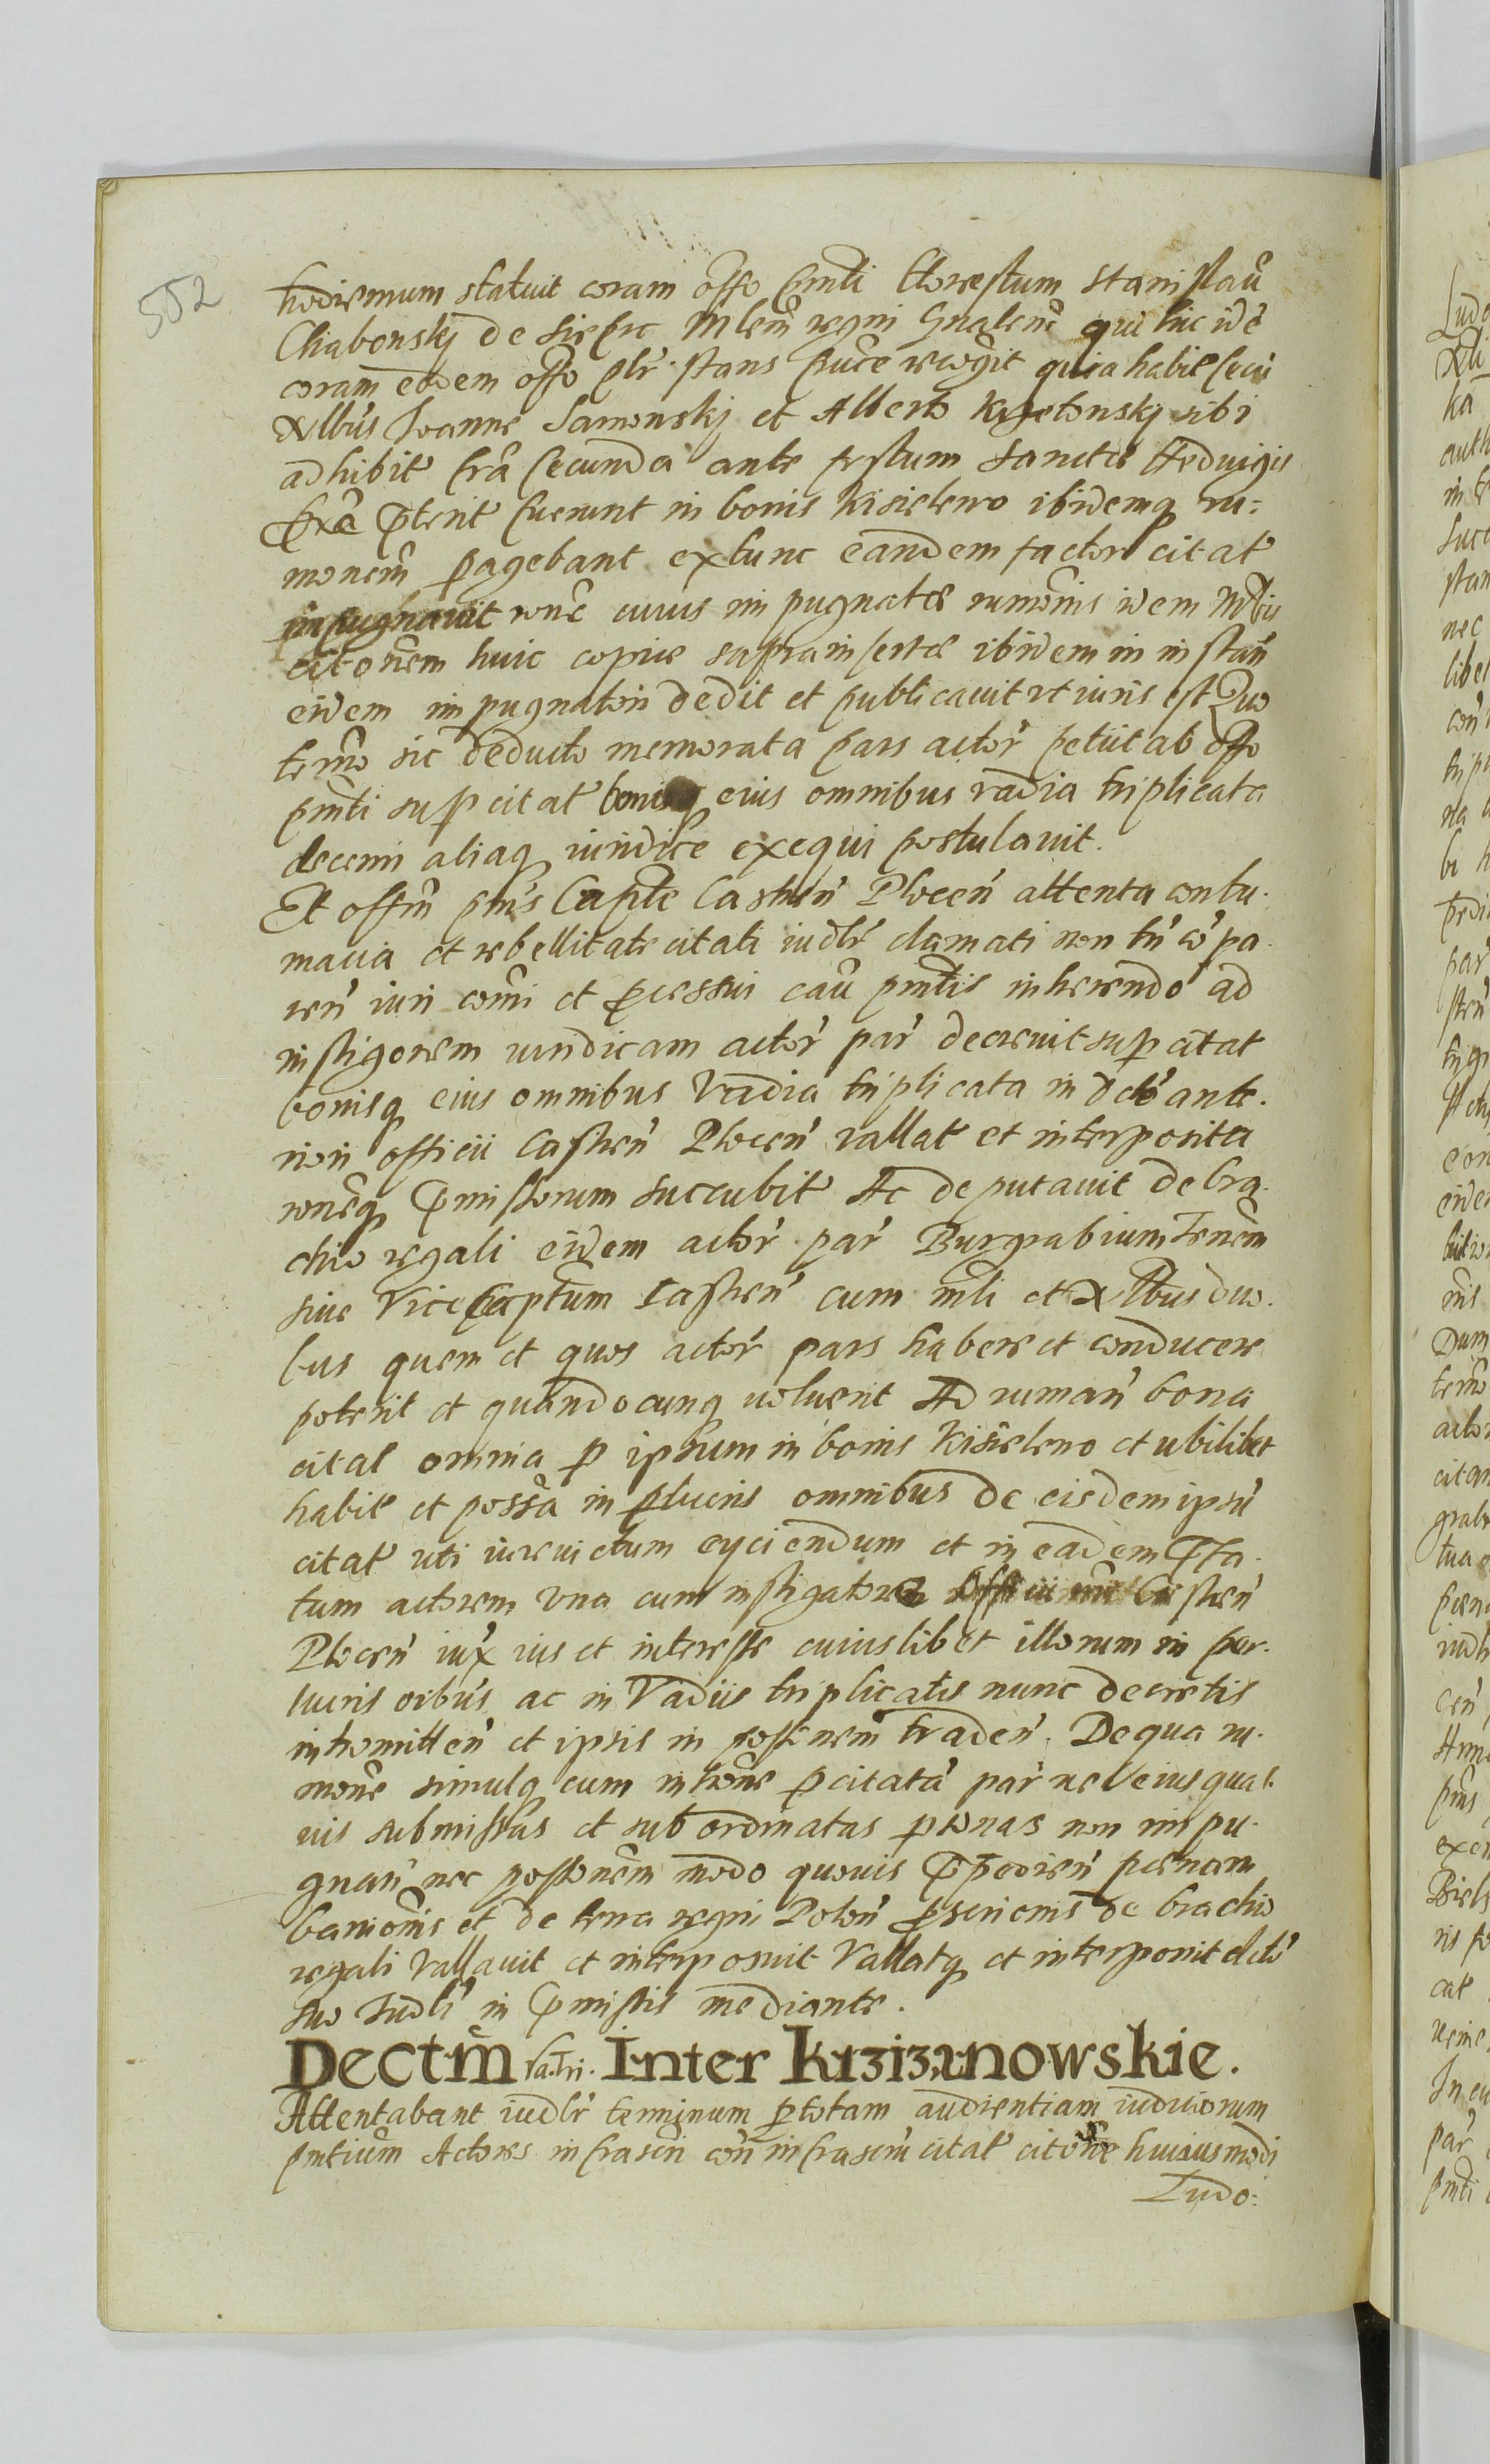 552
hodiernum statuit coram offo pnti honestum Stanislaũ
Chabonskj de Sieprc Mlem regni Gnalem qui hic idẽ
coram eodem offo plr stans puce recogit quia habit secũ
xllbus Joanne Samonskj et Alberto Kijetonskj sibi
adhibit fra secunda ante festum Sanctæ Heduigis
pxe pterit fuerunt in bonis Kisielewo ibidemq ru:
monem pagebant extunc eandem factor citat
impugnauit rone cuius impugnatæ rumonis idem Mlis
citonem huic copiæ suprainsertæ ibidem in instan
eidem impugnatori dedit et publicauit vt iuris est Quo
termo sic deducto memorata pars actor petiit ab offo
pnti sup citat bonisq eius omnibus vadia triplicata
decerni aliaq iuridice exequi postulauit.
Et offm pns Caple Castren Plocen attenta contu.
macia et rebellitate citati iudlr clamati non tn cõpa.
ren iuri comi et pcessui cau pntis inherendo ad
instigonem iuridicam actor par decreuit sup citat
bonisq eius omnibus Vadia triplicata in dcto ante.
riori officii Castren Plocen vallat et interposita
roneq pmissorum succubit Ac deputauit de bra.
chio regali eidem actor par Burgrabium Tenem
siue Vice Captum Castren cum mli et xllbus duo.
bus quem et quos actor pars habere et conducere
poterit et quandocunq uoluerit Ad ruman bona
citat omnia p ipsum in bonis Kisielewo et ubilibet
habit et possa in plucris omnibus de eisdem ipsũ
citat uti iureuictum eyciendum et in eadem pfa.
tum actorem vna cum instigatore Officii Castren
Plocen iux ius et interesse cuiuslibet illorum in per.
lucris oibus ac in Vadiis triplicatis nunc decretis
intromitten et ipsis in possonem traden. De qua ru.
mone simulq cum introne p citata par uel eius quas
uis submissas et subordinatas psonas non impu.
gnan nec possonem modo quouis ppedien pænam
banionis et de terra regni Polon pscrionis de brachio
regali Vallauit et interposuit Vallatq et interponit dcto
suo Iudli in pmissis mediante.
Dectm Inter Krziziznowskie.
Attentabant iudlr terminum p totam audientiam iudiciorum
pntium Actores infrascri con infrascri citat citone huiusmodi
Ludo: